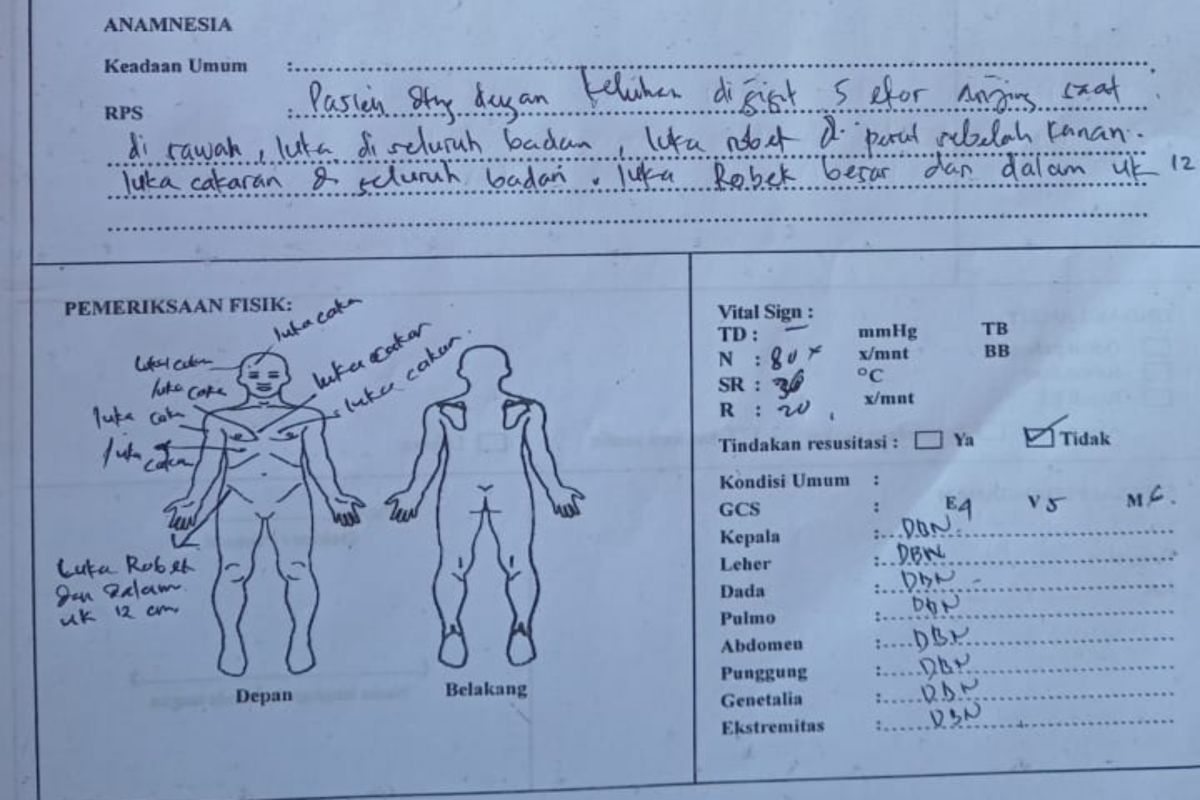 ANAMNESIA
Keadaan Umum :
RPS : Pasien dtng dengan keluhan di gigit 5 ekor anjing saat
di sawah, luka di seluruh badan, luka robek di perut sebelah kanan.
luka cakaran di seluruh badan. luka Robek besar dan dalam uk 12
PEMERIKSAAN FISIK:
luka caka
luka cakar
luka cakar
luka caka
luka cakar
luka caka
luka caka
Luka Robek
dan dalam
uk 12 cm
Depan
Belakang
Vital Sign :
TD : – mmHg TB
N : 80 x x/mnt BB
SR : 36 °C
R : 20 x/mnt
Tindakan resusitasi : Ya Tidak
Kondisi Umum :
GCS : E4 V5 M6.
Kepala : DBN
Leher : DBN
Dada : DBN
Pulmo : DBN
Abdomen : DBN
Punggung : DBN
Genetalia : DBN
Ekstremitas : DBN